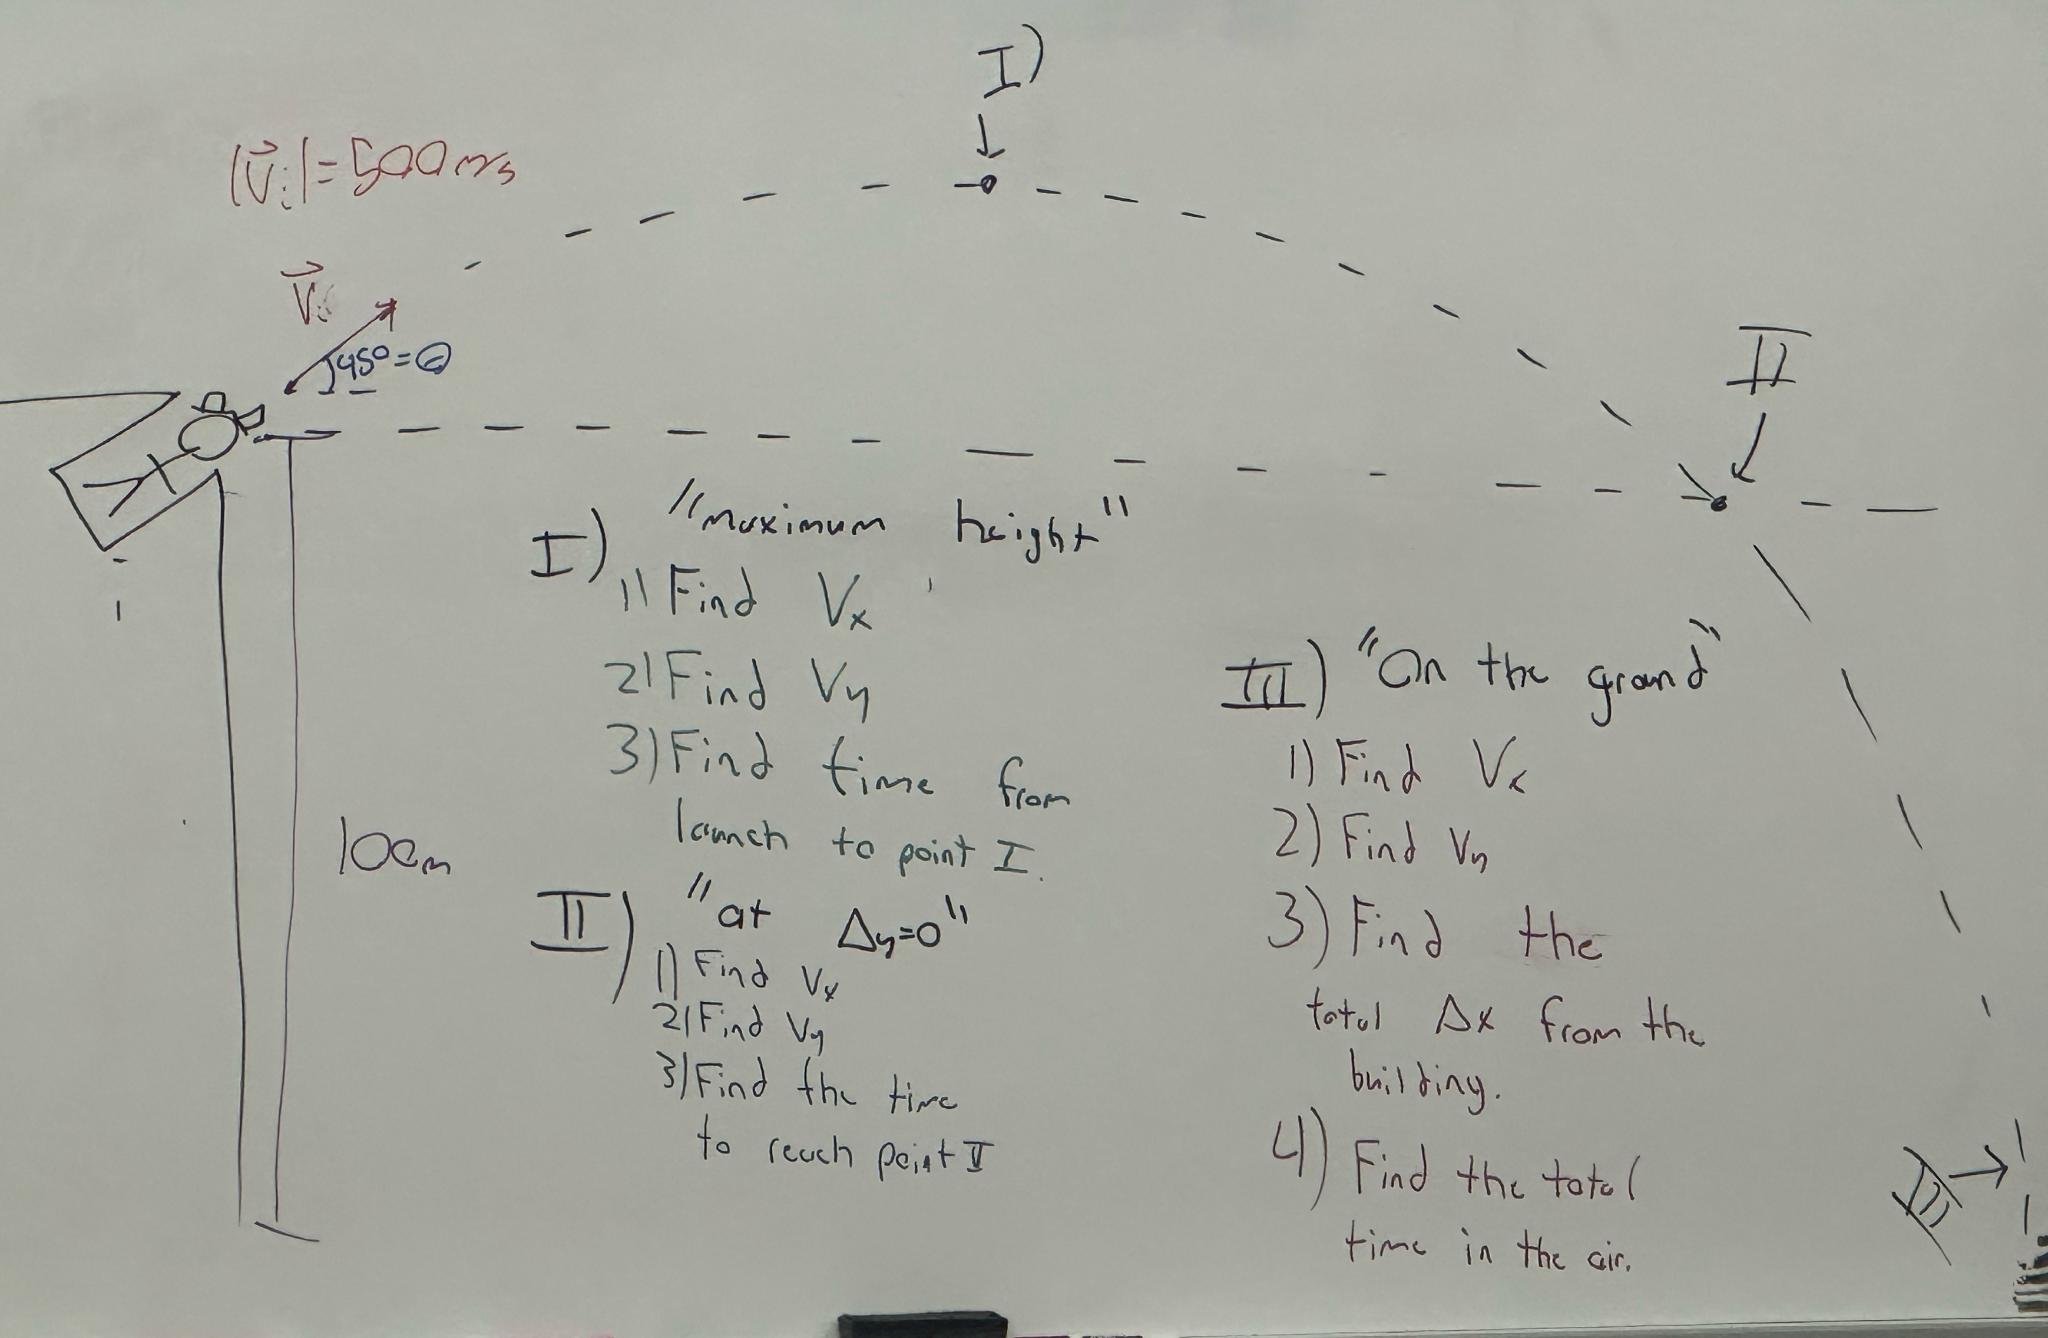 I)
|V⃗i| = 500 m/s
V⃗i
45° = θ
II
100m
I) "maximum height"
1) Find Vx
2) Find Vy
3) Find time from
launch to point I.
II) "at Δy=0"
1) Find Vx
2) Find Vy
3) Find the time
to reach point II
III) "On the ground"
1) Find Vx
2) Find Vy
3) Find the
total Δx from the
building.
4) Find the total
time in the air.
III